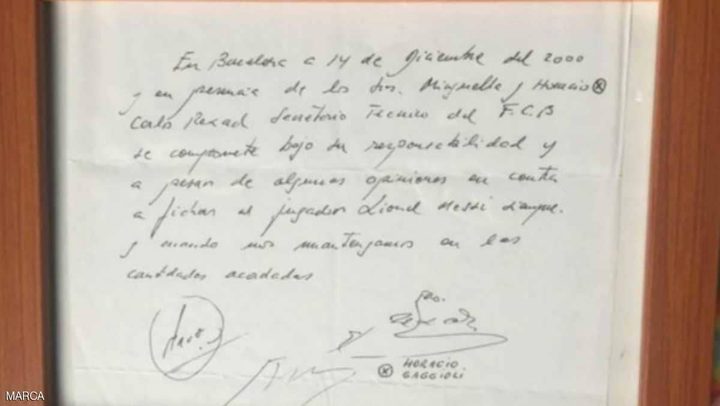 En Barcelona a 14 de Diciembre del 2000
y en presencia de los Srs. Minguella y Horacio ⓧ
Carlo Rexach Secretario Tecnico del F.C.B
se compromete bajo su responsabilidad y
a pesar de algunas opiniones en contra
a fichar al jugador Lionel Messi siempre
y cuando nos mantengamos en las
cantidades acordadas
ⓧ HORACIO
GAGGIOLI
MARCA